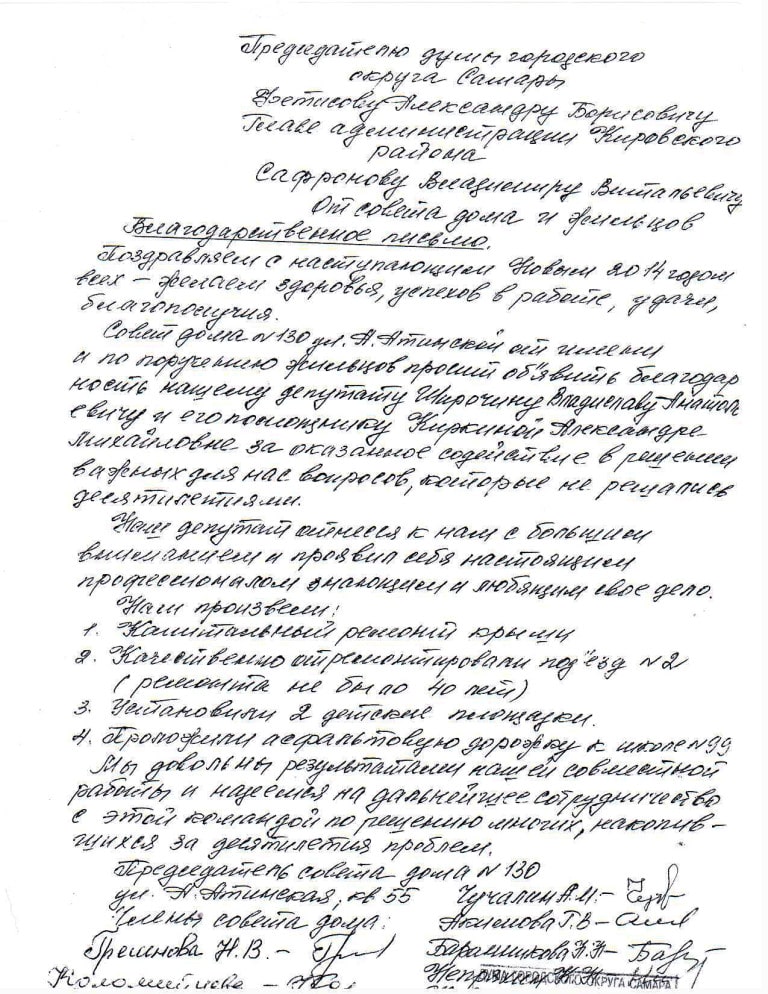 Председателю думы городского
округа Самары
Фетисову Александру Борисовичу
Главе администрации Кировского
района
Сафронову Владимиру Витальевичу
От совета дома и жильцов
Благодарственное письмо.
Поздравляем с наступающим Новым 2014 годом
всех – желаем здоровья, успехов в работе, удачи,
благополучия.
Совет дома N 130 ул. А.Атинской от имени
и по поручению жильцов просит об"явить благодар
ность нашему депутату Широчину Владиславу Анатоль
евичу и его помощнику Киркиной Александре
Михайловне за оказанное содействие в решении
важных для нас вопросов, которые не решались
десятилетиями.
Наш депутат отнесся к нам с большим
вниманием и проявил себя настоящим
профессионалом знающим и любящим свое дело.
Нам произвели:
1. Капитальный ремонт крыши
2. Качественно отремонтировали под"езд N2
(ремонта не было 40 лет)
3. Установили 2 детские площадки.
4. Проложили асфальтовую дорожку к школе N99
Мы довольны результатами нашей совместной
работы и надеемся на дальнейшее сотрудничество
с этой командой по решению многих, накопив–
шихся за десятилетия проблем.
Председатель совета дома N 130
ул. А.Атинская, кв 55 Чучалин А.М.–
Члены совета дома: Акимова Г.В –
Гремнова Н.В. – Баранникова Н.Н –
Коломийцева –
ГОРОДСКОГО ОКРУГА САМАРА